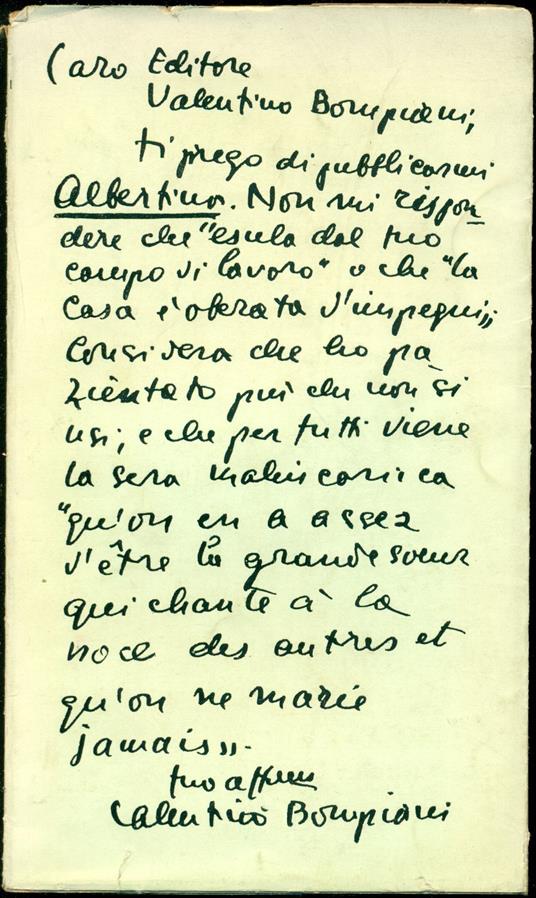 Caro Editore
Valentino Bompiani,
ti prego di pubblicarmi
Albertina. Non mi rispon
dere che "esula dal tuo
campo di lavoro" o che "la
Casa è oberata d'impegni".
Considera che ho pa
zientato più che non si
usi, e che per tutti viene
la sera malinconica
"qu'on en a assez
d'être la grande soeur
qui chante à la
noce des autres et
qu'on ne marie
jamais".
tuo aff.mo
Valentino Bompiani